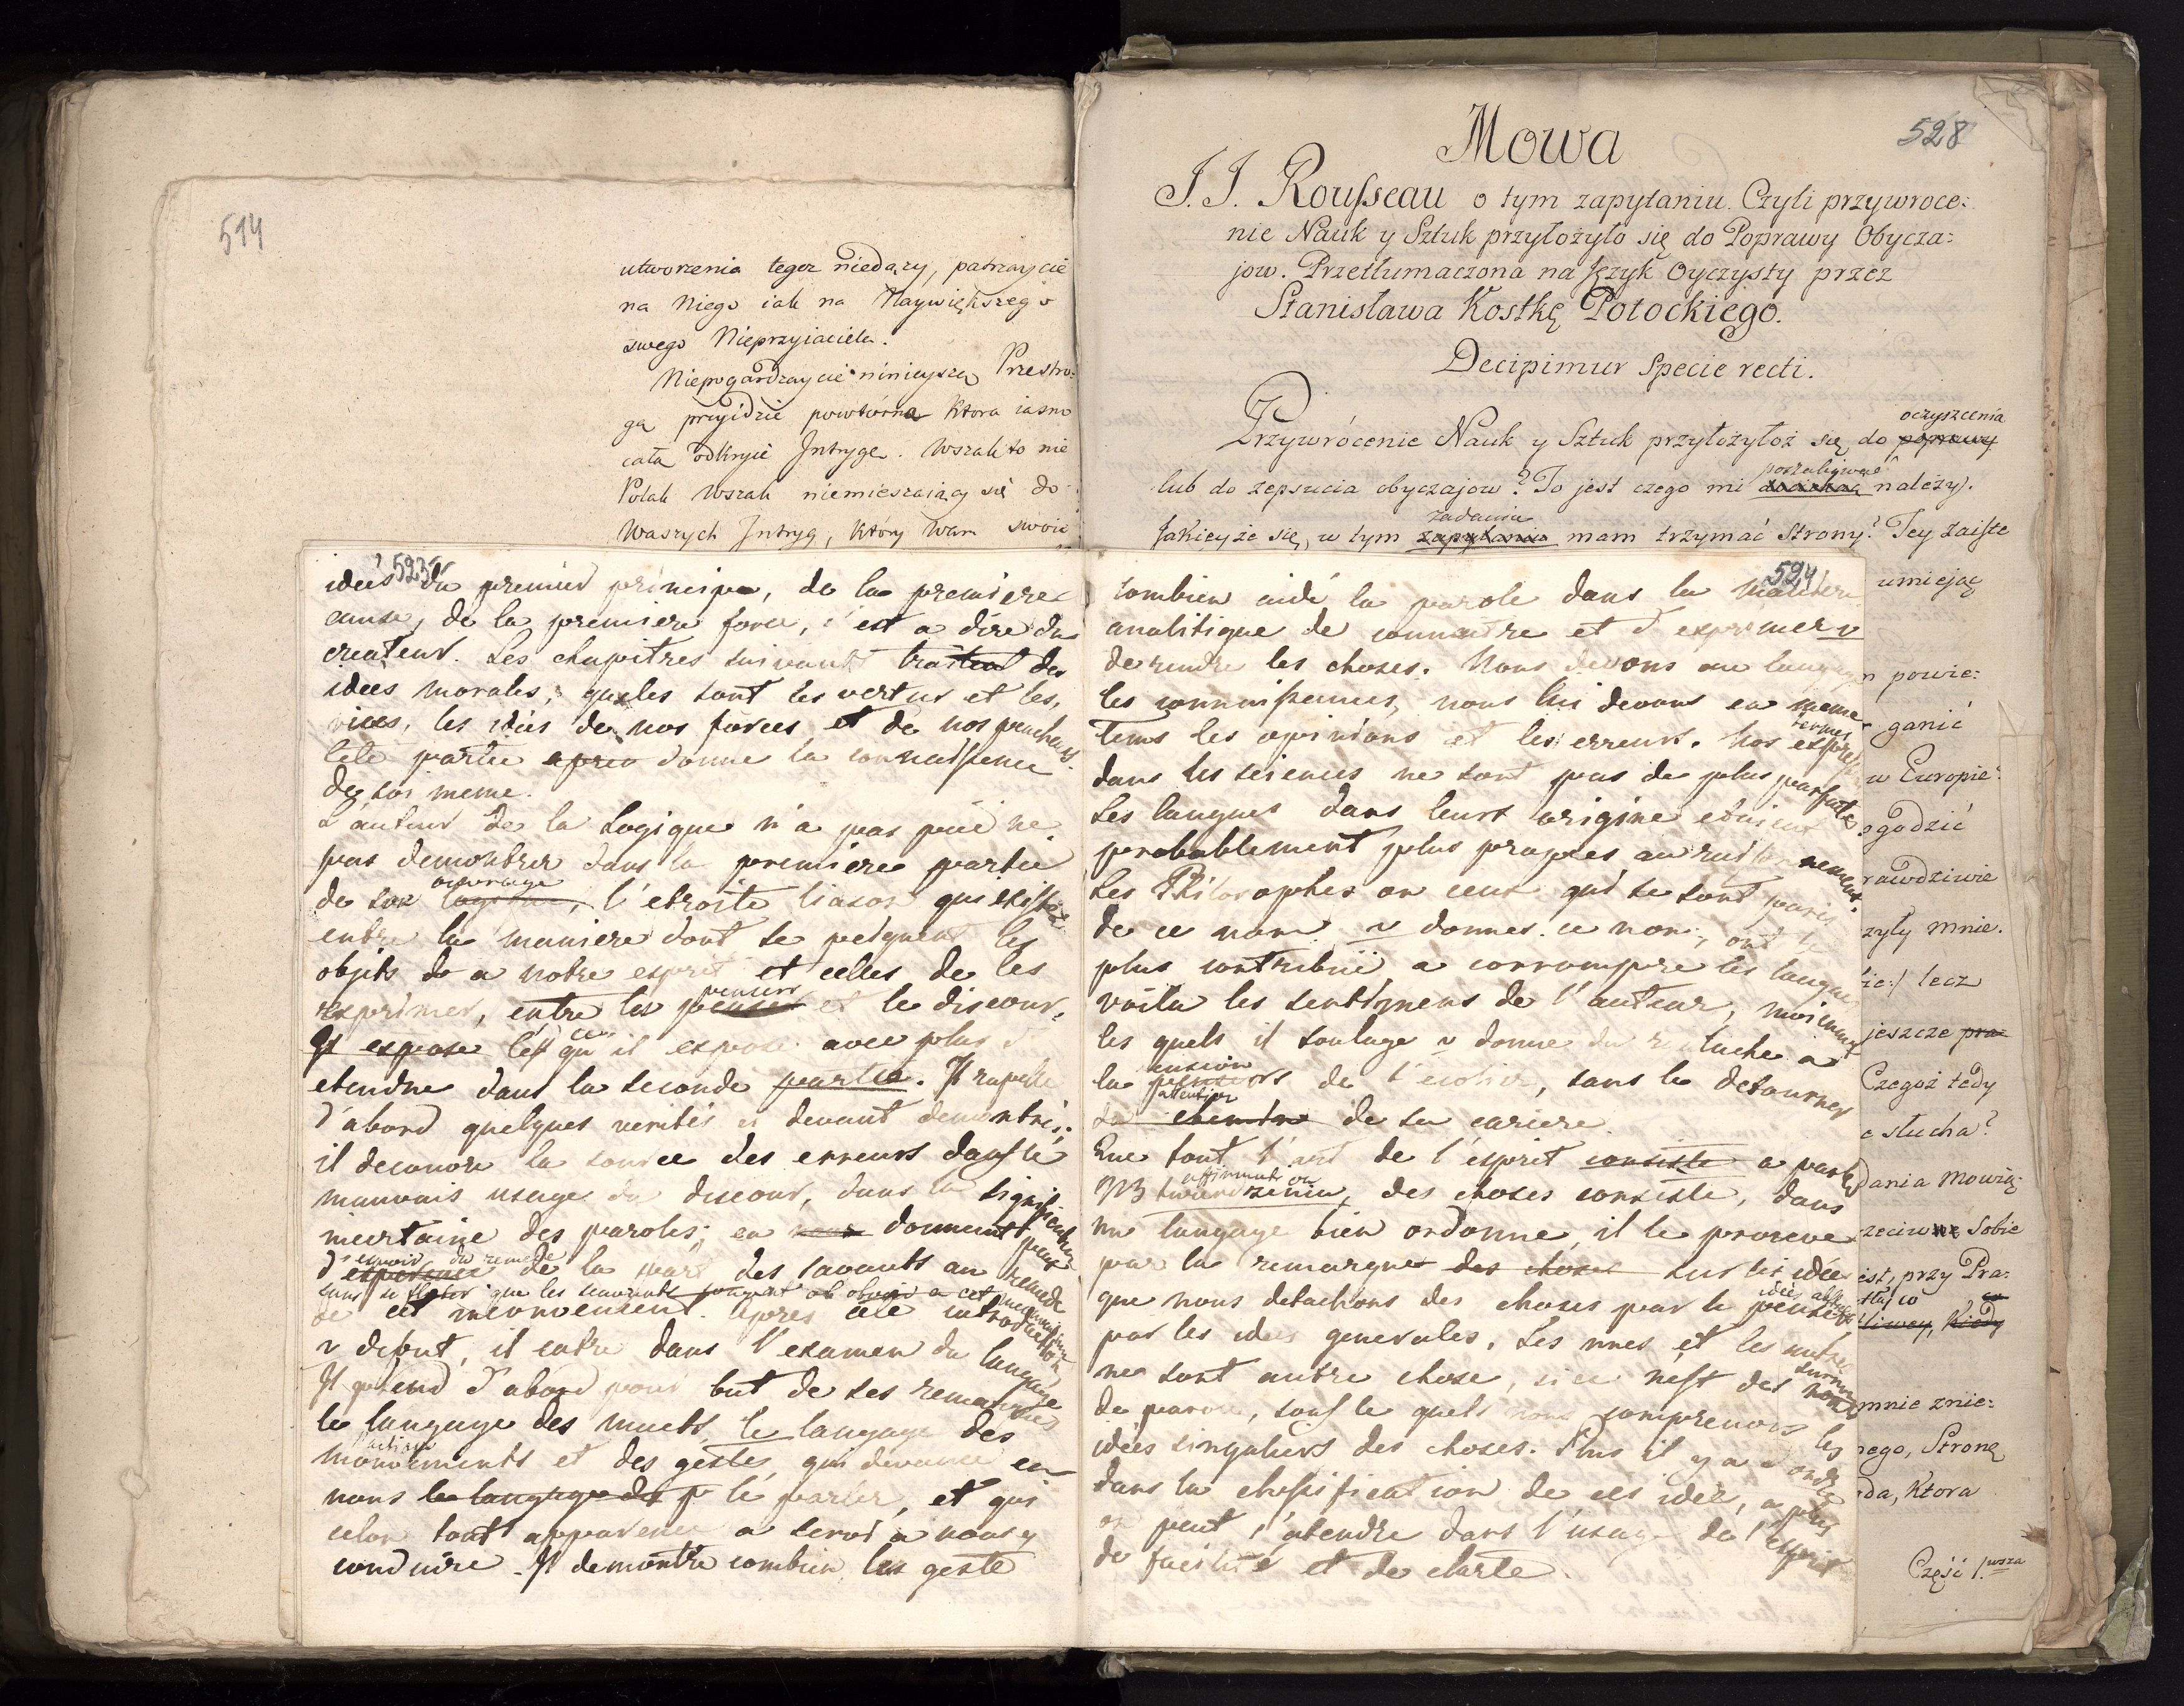 514
utworzenia tegoż niedazy, patrzaycie
na Niego iak na Naywiększego
swego Nieprzyiaciela.
Niepogardzaycie ninieyszą Przestro-
gą przyidzie powtórna Ktora iasno
całą odkryie Jntrygę. Wszak to nie
Polak Wszak niemieszaiący się do
Waszych Jntryg, Który Wam swoie
523
ideés du premier principe, de la premiere
cause, de la premiere force, c'est a dire du
createur. Les chapitres suivants traitent des
idées morales; queles sont les vertus et les
vices, les idées de nos forces et de nos penchans.
Cete partie apres donne la connaissence
de soi meme.
L'auteur de la Logique n'a pas puë ne
pas demontrer dans la premiere partie
ouvrage
de son logique, l'etroite liason qui existe
entre la maniere dont se peignent les
objets de a notre esprit et celles de les
pensers
exprimer, entre les penser et le discour.
ce
Il expose les qu'il expose avec plus d
etendue dans la seconde partie. Il rapelle
d'abord quelques verités ci devant demontrés;
il decouvre la source des erreurs dans le
mauvais usage du discour, dans la signification
incertaine des paroles; en nous donnant peu
d'espoir du remede
d'esperence de la part des savants au remede
sans se flater que les savants
de cet inconvenient. apres cete introduction
v debut, il entre dans l'examen du langage
Il prend d'abord pour but de ses remarques
le langage des muets, le langage des
action
mouvements et des gestes, qui devance en
nous le langage de p le parler, et qui
selon tout apparence a servi a nous y
conduire. Il demontre combien les geste
528
Mowa
J. J. Rousseau o tym zapytaniu. Czyli przywroce:
nie Nauk y Sztuk przyłożyło się do Poprawy Obycza:
jow. Przetłumaczona na Język Oyczysty przez
Stanisława Kostkę Potockiego.
Decipimur Specie recti.
oczyszcenia
Przywrócenie Nauk y Sztuk przyłożyłoż się do poprawy
lub do zepsucia obyczajow? To jest czego mi dociekać należy.
zadaniu
Jakieyże się, w tym zapytaniu mam trzymać Strony? Tey zaiste
umieją
524
combien aidé la parole dans la maniere
analitique de connaitre et d'exprimer v
de rendre les choses. Nous devons au langage
les connaissences, nous lui devons en meme
termes
Tems les opinions et les erreurs. Nos expres
dans les sciences ne sont pas de plus parfaites
Les langues dans leurs origine etaient
probablement plus propres au raisonnement.
Les Philosophes ou ceux qui se sont parés
de ce nom v donnes ce nom, ont le
plus contribuë a corrompre les langues
voila les sentimens de l'auteur, moienant
les quels il soulage v donne du relache a
la tension de l'ecolier, sans le detourner
attention
du chemin de sa cariere.
Que tout l'art de l'esprit consiste a parler
affirmation
NB twierdzenia, des choses consiste, dans
un langage bien ordonne, il le prouve
par la remarque des choses sur les idées
que nous detachons des choses par le penser
par les idées generales. Les unes et les autres
ne sont autre chose, si ce n'est des noms
de paroles, sous le quels nous comprenons les
idees singuliers des choses. Plus il y a d'ordre
dans la classification de ces idée, a plus
on peut s'atendre dans l'usage de l'esprit
de facilité et de clarte.
n powie:
ganić
w Europie
ogodzić
rawdziwie
zyły mnie.
lecz
jeszcze pra
Czegoż tedy
e słucha?
dania Mowię
Sobie
est, przy Pra:
Kiedy
mnie znie:
nego, Stronę
da, Ktora
Część 1.wsza